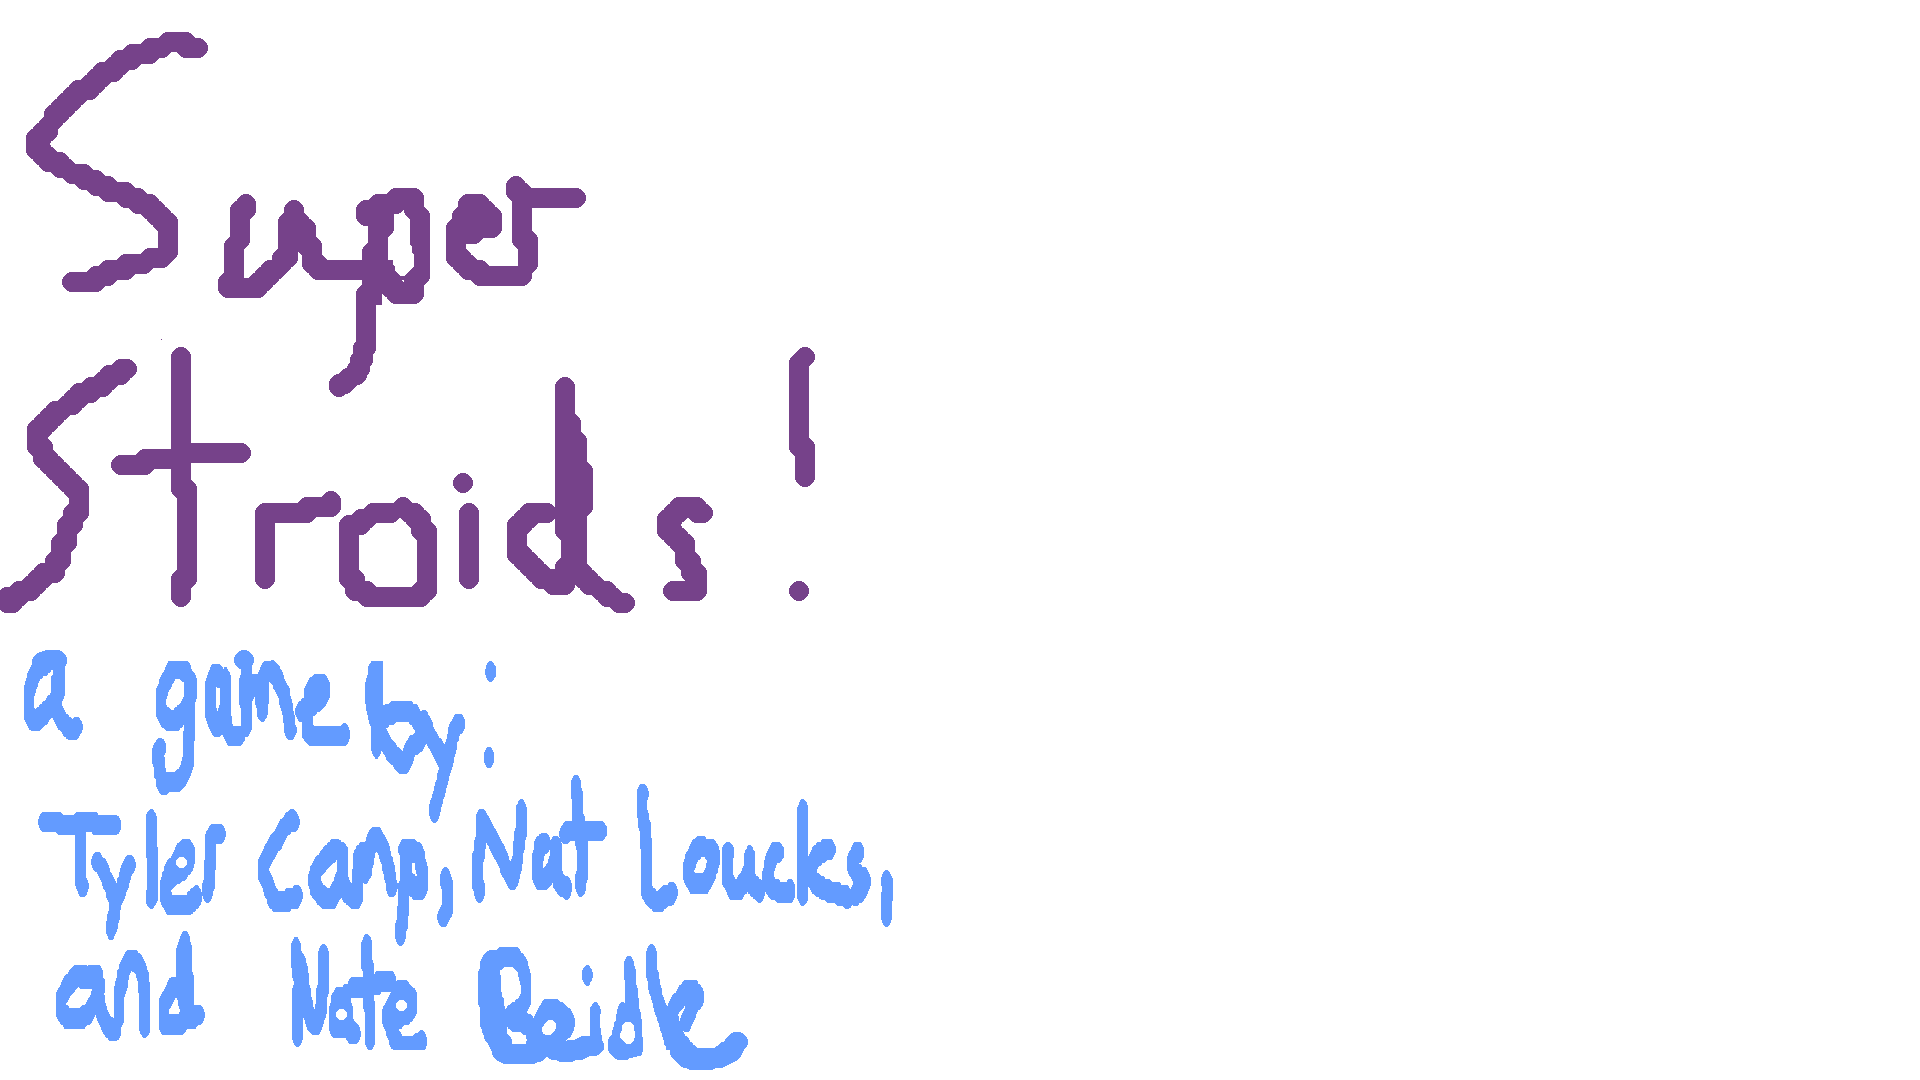 Super
Stroids!
a game by:
Tyler Camp, Nat Loucks,
and Nate Beidle